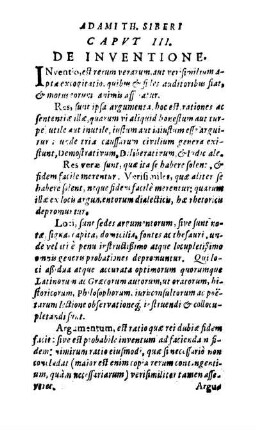 ADAMI TH. SIBERI
CAPVT III.
DE INVENTIONE.
INventio, est rerum verarum, aut verisimilium a-
pta excogitatio, quibus & fides auditoribus fiat,
& motus eorum animis affe atur.
Res, sunt ipsa argumenta, hoc est rationes ac
sententiæ illæ, quarum vi aliquid honestum aut tur-
pe utile aut inutile, iustum aut iniustum eff: argui-
tur: unde tria caussarum civilium genera exi-
stunt, Demonstrativum, Deliberativum, & Iudiciale.
Res veræ sunt, quæ ita se habere solent, &
fidem facile merentur. Verisimiles, quæ aliter se
habere solent, neque fidem facilè merentur; quarum
illæ ex locis argumentorum dialecticis, hæ rhetoricis
depromuntur.
Loci, sunt sedes argumentorum, sive sunt no-
tæ, signa, capita, domicilia, fontes ac thesauri, un-
de velut è penu instructissimo atque locupletissimo
omnis generis probationes depromuntur. Qui lo-
ci assidua atque accurata optimorum quorumque
Latinorum ac Græcorum autorum, ut oratorum, hi-
storicorum, Philosophorum, iurisconsultorum ac poë-
tarum lectione observationeq; instruendi & collocu-
pletandi sunt.
Argumentum, est ratio quæ rei dubiæ fidem
facit: sive est probabile inventum ad faciendam fi-
dem: nimirum ratio eiusmodi, quæ si necessariò non
concludat (maior est enim copia rerum contingenti-
um, quàm necessariarum) verisimiliter tamen asse-
veret. Argu